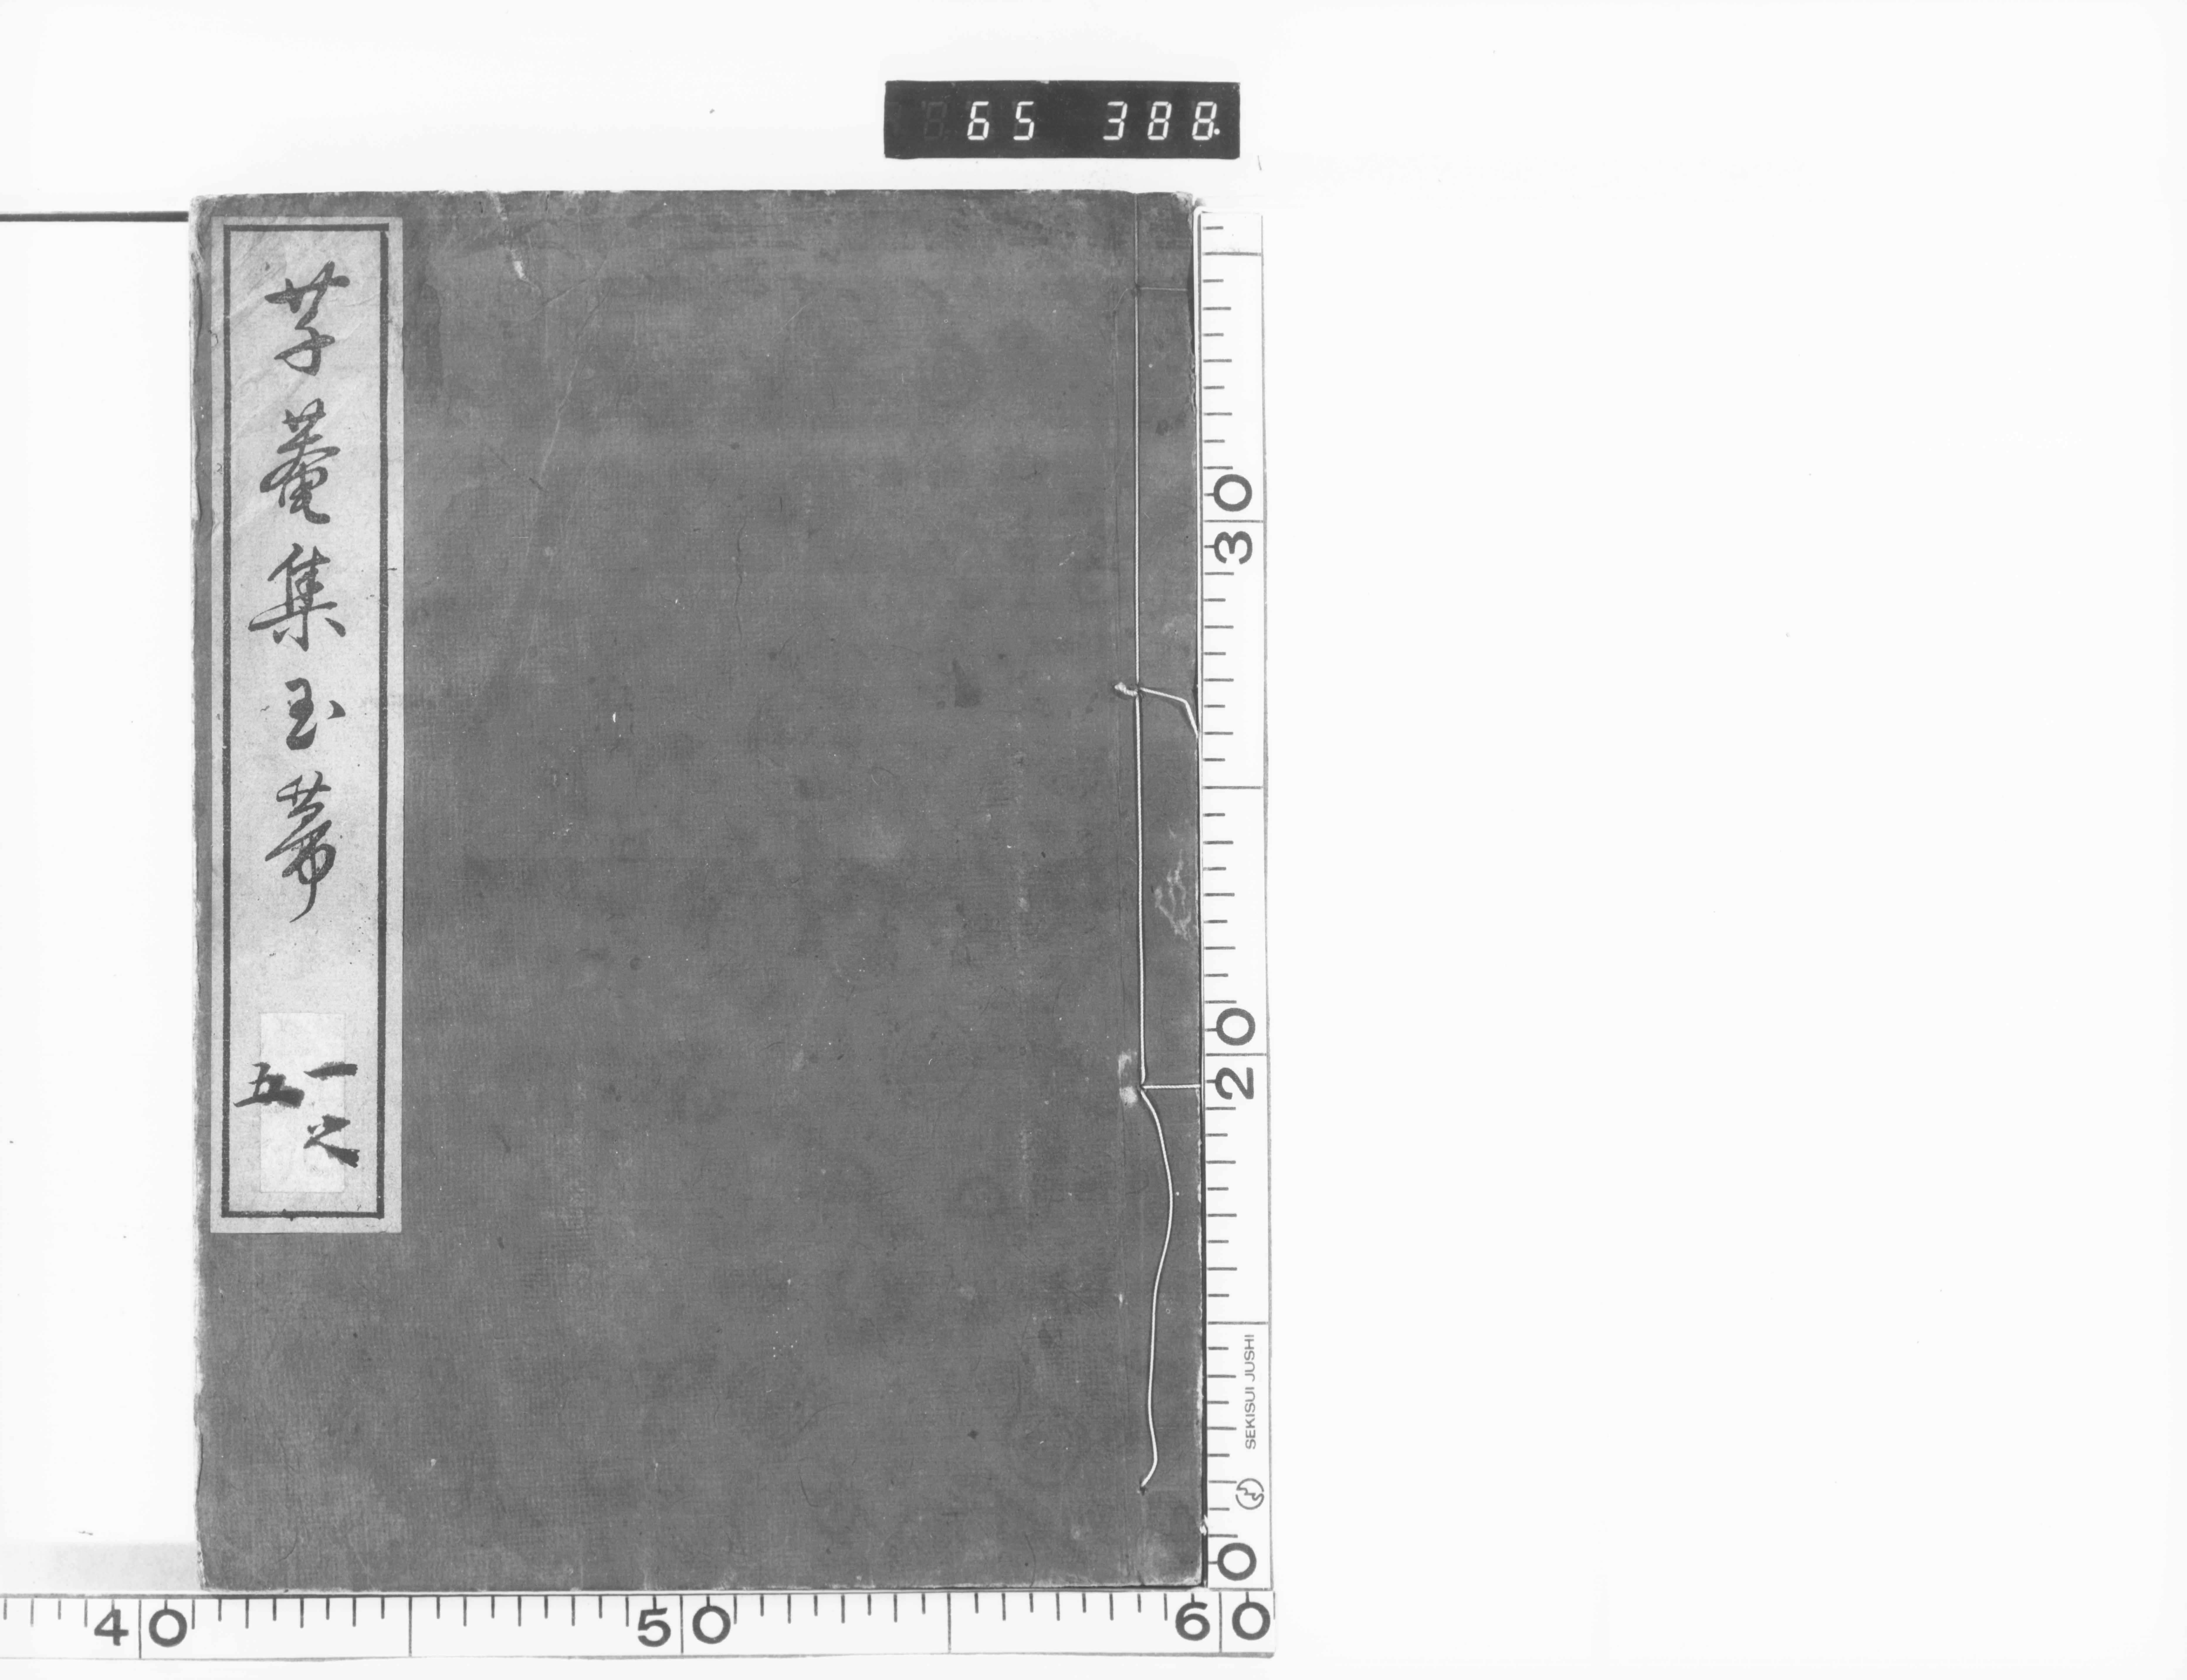 65 388.
草菴集玉菷
一之
五
30
20
SEKISUI JUSHI
0
40 50 60